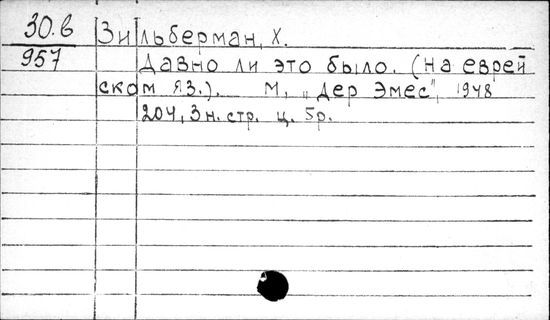 30.в Зильберман, Х.
957 Давно ли это было. (на еврей
ском яз.). М, „Дер Эмес", 1948
204, 3 н. стр. ц. 5р.